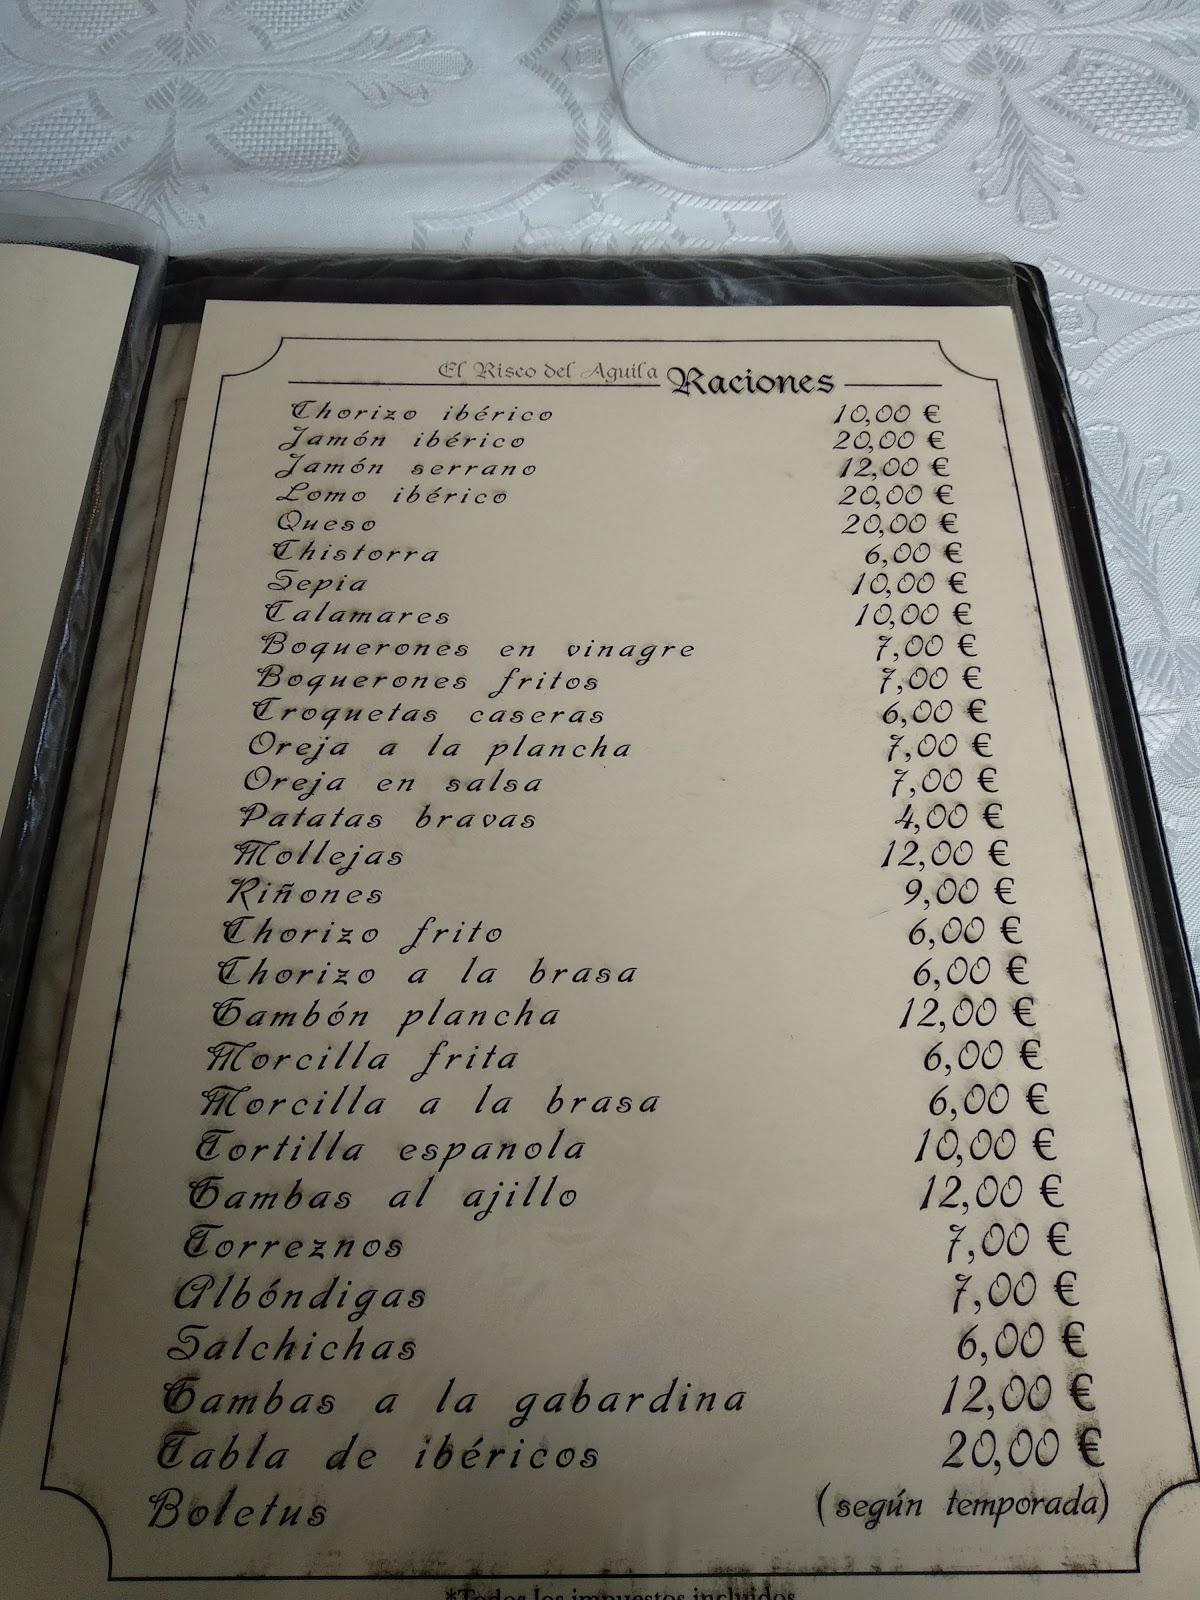 El Risco del Aguila Raciones
Chorizo ibérico 10,00 €
Jamón ibérico 20,00 €
Jamón serrano 12,00 €
Lomo ibérico 20,00 €
Queso 20,00 €
Chistorra 6,00 €
Sepia 10,00 €
Calamares 10,00 €
Boquerones en vinagre 7,00 €
Boquerones fritos 7,00 €
Croquetas caseras 6,00 €
Oreja a la plancha 7,00 €
Oreja en salsa 7,00 €
Patatas bravas 4,00 €
Mollejas 12,00 €
Riñones 9,00 €
Chorizo frito 6,00 €
Chorizo a la brasa 6,00 €
Gambón plancha 12,00 €
Morcilla frita 6,00 €
Morcilla a la brasa 6,00 €
Tortilla espanola 10,00 €
Gambas al ajillo 12,00 €
Torreznos 7,00 €
Albóndigas 7,00 €
Salchichas 6,00 €
Gambas a la gabardina 12,00 €
Tabla de ibéricos 20,00 €
Boletus (según temporada)
*Todos los impuestos incluidos